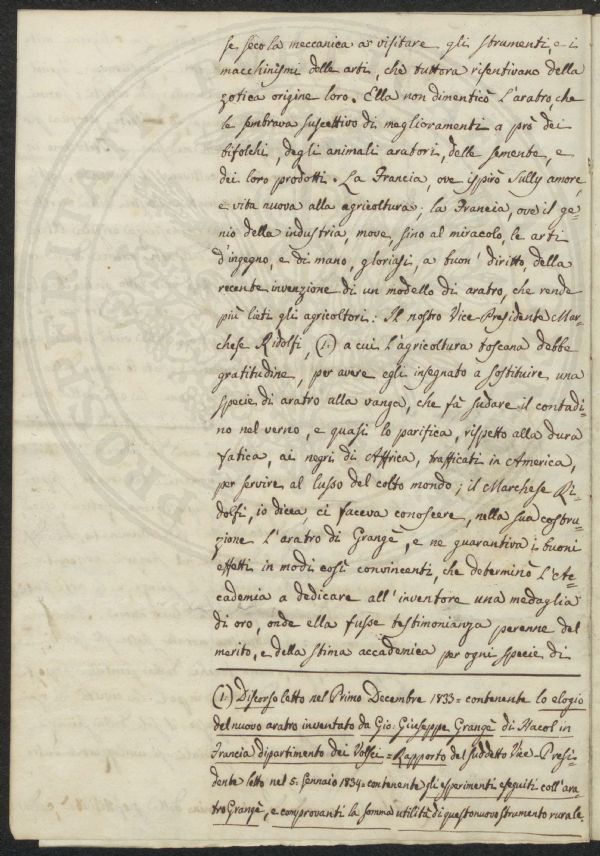 se seco la meccanica a visitare gli strumenti, e i
macchinismi delle arti, che tuttora risentivano della
zotica origine loro. Ella non dimenticò l'aratro, che
le sembrava suscettivo di miglioramenti a prò dei
bifolchi, degli animali aratori, delle semente, e
dei loro prodotti. La Francia, ove ispirò Sully amore,
e vita nuova alla agricoltura; la Francia, ove il ge-
nio della industria, move, sino al miracolo, le arti
d'ingegno, e di mano, gloriasi, a buon' diritto, della
recente invenzione di un modello di aratro, che rende
più lieti gli agricoltori: Il nostro Vice-Presidente Mar-
chese Ridolfi, (1.) a cui l'agricoltura toscana debbe
gratitudine, per avere egli insegnato a sostituire una
specie di aratro alla vanga, che fà sudare il contadi-
no nel verno, e quasi lo parifica, rispetto alla dura
fatica, ai negri di Affrica, trafficati in America,
per servire al lusso del colto mondo; il Marchese Ri-
dolfi, io dicea, ci faceva conoscere, nella sua costru-
zione l'aratro di Grangè, e ne guarantiva i buoni
effetti in modi così convincenti, che determinò l'Ac-
cademia a dedicare all'inventore una medaglia
di oro, onde ella fusse testimonianza perenne del
merito, e della stima accademica per ogni specie di
(1.) Discorso letto nel Primo Decembre 1833 = contenente lo elogio
del nuovo aratro inventato da Gio: Giuseppe Grangè di Hacol in
Francia dipartimento dei Volsci = Rapporto del suddetto Vice-Presi-
dente letto nel 5. Gennaio 1834 = contenente gli esperimenti eseguiti coll'ara-
tro Grangè, e comprovanti la somma utilità di questo nuovo strumento rurale.